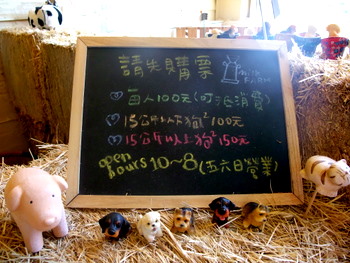 請先購票
每人100元(可抵消費)
15公斤以下狗100元
15公斤以上狗150元
open hours 10~8(五六日營業)